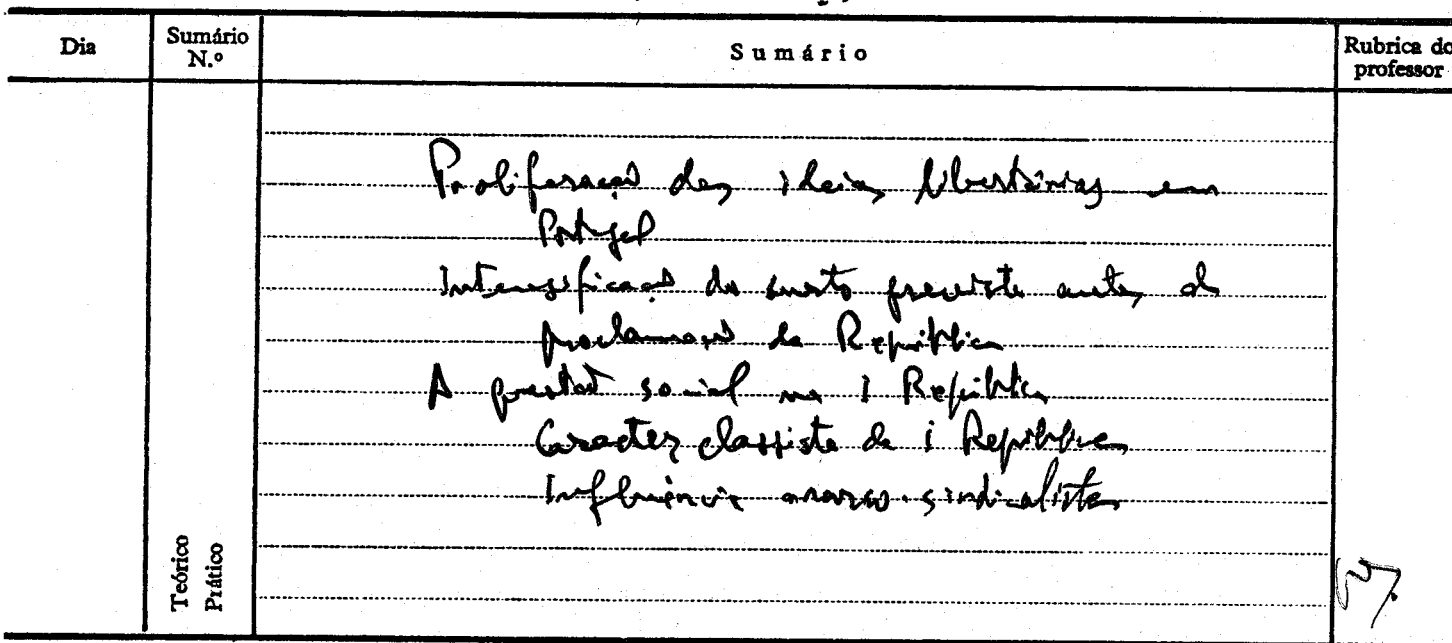 Dia
Sumário N.º
Sumário
Rubrica do professor
Proliferação das ideias libertárias em
Portugal
Intensificação do surto grevista antes da
proclamação da República
A questão social na I República
Caracter classista da I República
Influência anarco-sindicalista
Teórico
Prático